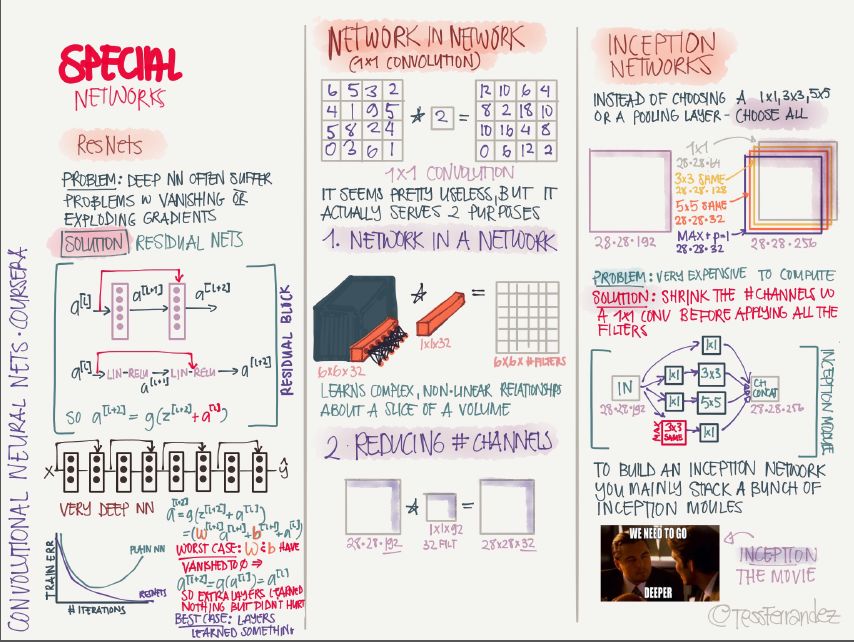 CONVOLUTIONAL NEURAL NETS · COURSERA
SPECIAL
NETWORKS
ResNets
PROBLEM: DEEP NN OFTEN SUFFER
PROBLEMS W VANISHING OR
EXPLODING GRADIENTS
SOLUTION RESIDUAL NETS
a[l] a[l+1] a[l+2]
a[l] LIN-RELU LIN-RELU a[l+2]
a[l+1]
SO a[l+2] = g(z[l+2] + a[l])
RESIDUAL BLOCK
X ŷ
VERY DEEP NN
a[l+2] = g(z[l+2] + a[l])
= (W[l+2] a[l+1] + b[l+2] + a[l])
WORST CASE: W & b HAVE
VANISHED TO 0 ⇒
a[l+2] = g(a[l]) = a[l]
SO EXTRA LAYERS LEARNED
NOTHING BUT DIDN'T HURT
BEST CASE: LAYERS
LEARNED SOMETHING
TRAIN ERR
PLAIN NN
RESNETS
# ITERATIONS
NETWORK IN NETWORK
(1x1 CONVOLUTION)
6 5 3 2 12 10 6 4
4 1 9 5 * 2 = 8 2 18 10
5 8 2 4 10 16 4 8
0 3 6 1 0 6 12 2
1x1 CONVOLUTION
IT SEEMS PRETTY USELESS, BUT IT
ACTUALLY SERVES 2 PURPOSES
1. NETWORK IN A NETWORK
* =
1x1x32
6x6x32 6x6x# FILTERS
LEARNS COMPLEX, NON-LINEAR RELATIONSHIPS
ABOUT A SLICE OF A VOLUME
2. REDUCING # CHANNELS
* =
28·28·192 1x1x92 28x28x32
32 FILT
INCEPTION
NETWORKS
INSTEAD OF CHOOSING A 1x1, 3x3, 5x5
OR A POOLING LAYER - CHOOSE ALL
1x1
28·28·64
3x3 SAME
28·28·128
5x5 SAME
28·28·32
MAX + p=1
28·28·32
28·28·192 28·28·256
PROBLEM: VERY EXPENSIVE TO COMPUTE
SOLUTION: SHRINK THE # CHANNELS W
A 1x1 CONV BEFORE APPLYING ALL THE
FILTERS
1x1
IN 1x1 3x3 CH
28·28·192 1x1 5x5 CONCAT
MAX 3x3 SAME 1x1 28·28·256
INCEPTION MODULE
TO BUILD AN INCEPTION NETWORK
YOU MAINLY STACK A BUNCH OF
INCEPTION MODULES
WE NEED TO GO
DEEPER
INCEPTION
THE MOVIE
@TessFerrandez